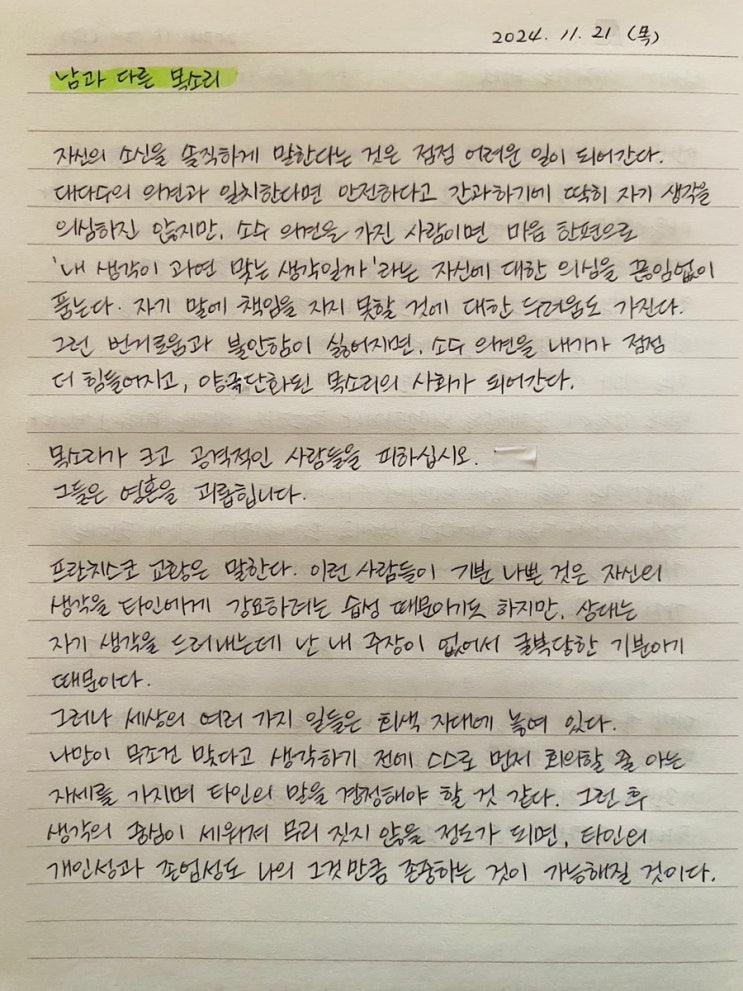 2024. 11. 21 (목)
남과 다른 목소리
자신의 소신을 솔직하게 말한다는 것은 점점 어려운 일이 되어간다.
대다수의 의견과 일치한다면 안전하다고 간과하기에 딱히 자기 생각을
의심하진 않지만, 소수 의견을 가진 사람이면 마음 한편으로
'내 생각이 과연 맞는 생각일까'라는 자신에 대한 의심을 끊임없이
품는다. 자기 말에 책임을 지지 못할 것에 대한 두려움도 가진다.
그런 번거로움과 불안함이 싫어지면, 소수 의견을 내기가 점점
더 힘들어지고, 양극단화된 목소리의 사회가 되어간다.
목소리가 크고 공격적인 사람들을 피하십시오.
그들은 영혼을 괴롭힙니다.
프란치스코 교황은 말한다. 이런 사람들이 기분 나쁜 것은 자신의
생각을 타인에게 강요하려는 습성 때문이기도 하지만, 상대는
자기 생각을 드러내는데 난 내 주장이 없어서 굴복당한 기분이기
때문이다.
그러나 세상의 여러 가지 일들은 회색 지대에 놓여 있다.
나만이 무조건 맞다고 생각하기 전에 스스로 먼저 회의할 줄 아는
자세를 가지며 타인의 말을 경청해야 할 것 같다. 그런 후
생각의 중심이 세워져 무리 짓지 않을 정도가 되면, 타인의
개인성과 존엄성도 나의 그것만큼 존중하는 것이 가능해질 것이다.